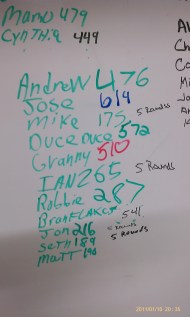 Mano 479
CynTHia 449
Andrew 476
Jose 619
Mike 175
5 Rounds
Duce Duce 572
Granny 510
IAN 265
5 Rounds
Robbie 287
BranFLAKES 541
Jon 216
5 Rounds
Seth 189
5 Rounds
Matt 190
A
Ch
Co
Mi
Jo
A
K